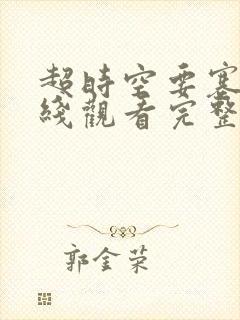 超時空要塞
綫觀看完整
郭金荣